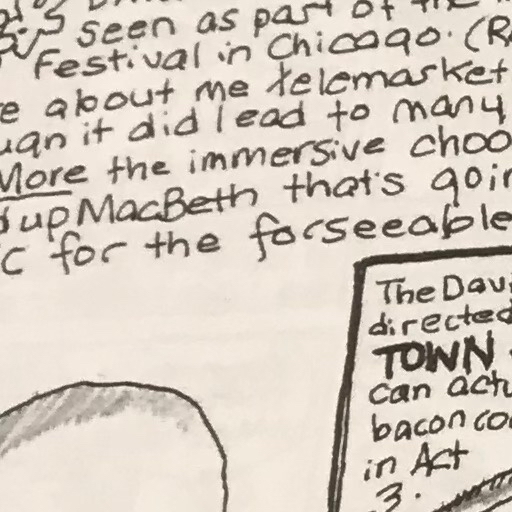 seen as part of the
Festival in Chicago. (R
e about me telemarket
ugh it did lead to many
More the immersive choo
d up MacBeth that's goin
C for the forseeable
The Davi
directed
TOWN
can actu
bacon co
in Act
3.